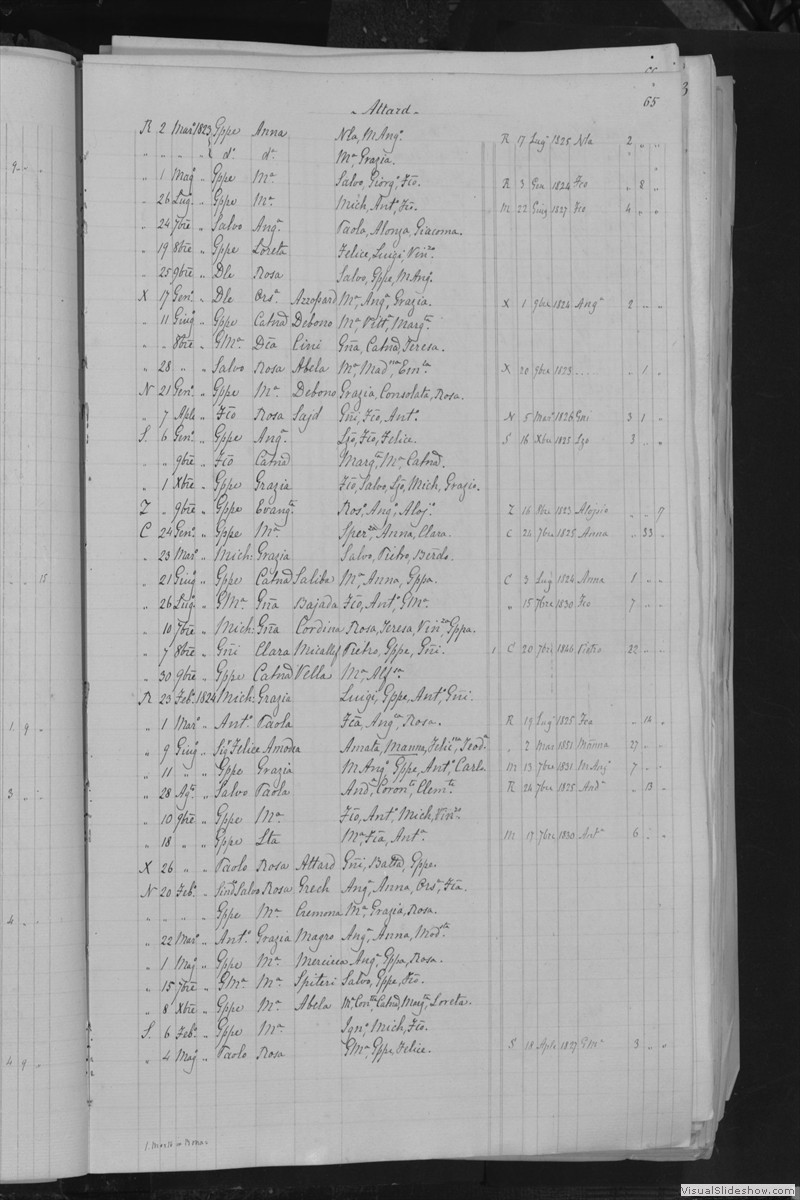 3
65
Attard
R 2 Mar° 1823 Gppe Anna Nla, M Angª R 17 Lug° 1825 Nla 2 " "
" " " " dº dª Mª, Grazia.
" 1 Mag° " Gppe Mª Salvo, Giorg°, Fco. R 3 Gen 1824 Fco " 2 "
" 26 Lug° " Gppe Mª Mich, Ant°, Fco. M 22 Giug 1827 Fco 4 " "
" 24 7bre " Salvo Angª Paola, Alonza, Giacoma.
9 " 19 8bre " Gppe Loreta Felice, Luigi, Vinzo.
" 25 9bre " Dle Rosa Salvo, Gppe, M Angª
X 17 Gen° " Dle Orsª Azzopard Mª, Angª, Grazia. X 1 9bre 1824 Angª 2 " "
" 11 Giug° " Gppe Catnd Debono Mª, Vittª, Margta.
" " 8bre " GMª Dca Cini Gña, Catnd, Teresa.
" 28 " " Salvo Rosa Abela Mª, Madna, Emca X 20 9bre 1823 " 1 "
N 21 Gen° " Gppe Mª Debono Grazia, Consolata, Rosa.
" 7 Aple " Fco Rosa Sajd Gñi, Fco, Ant° N 5 Mar° 1826 Gni 3 1 "
S. 6 Gen° " Gppe Angª Lzo, Fco, Felice. S 16 Xbre 1825 Lzo 3 " "
" " 9bre " Fco Catnd Margta, Mª, Catnd.
" 1 Xbre " Gppe Grazia Fco, Salvo, Lzo, Mich, Grazio.
Z " 9bre " Gppe Evangta Ros°, Ang°, Aloj° Z 16 9bre 1823 Alojsio " " 17
C 24 Gen° " Gppe Mª Sperza, Anna, Clara. C 24 7bre 1825 Anna " 33 "
" 23 Mar° " Mich: Grazia Salvo, Pietro, Berdo.
15 " 21 Giug° " Gppe Catnd Saliba Mª, Anna, Gppa. C 3 Lug° 1824 Anna 1 " "
" 26 Lug° " GMª Gña Bajada Fco, Ant°, GMª " 15 7bre 1830 Fco 7 " "
" 10 7bre " Mich: Gña Cordina Rosa, Teresa, Vinza, Gppa.
" 7 8bre " Gñi Clara Micallef Pietro, Gppe, Gñi. 1 C 20 7bre 1846 Pietro 22 " "
" 30 9bre " Gppe Catnd Vella Mª, Alfsa
R 23 Feb° 1824 Mich: Grazia Luigi, Gppe, Ant°, Gñi.
1 9 " 1 Mar° " Ant° Paola Fca, Angca, Rosa. R 19 Lug° 1825 Fca " 14 "
" 9 Giug° " Sig Felice Amodea Amata, Manna, Felicna, Teodª " 2 Mar 1851 Manna 27 " "
" 11 " " Gppe Grazia M Ang°, Gppe, Ant°, Carla M 13 7bre 1831 M Ang° 7 " "
3 " 28 Ag° " Salvo Paola Andª, Coronta, Clemta. R 24 7bre 1825 Andª " 13 "
" 10 9bre " Gppe Mª Fco, Ant°, Mich, Vinzo.
" 18 " " Gppe Lta Mª, Fca, Antª M 17 7bre 1830 Antª 6 " "
X 26 " " Paolo Rosa Attard Gñi, Battd, Gppe.
N 20 Feb° " Salvo Rosa Grech Angª, Anna, Orsª, Fca.
4 " " " " Gppe Mª Cremona Mª, Grazia, Rosa.
" 22 Mar° " Ant° Grazia Magro Angª, Anna, Modta
" 1 Mag° " Gppe Mª Mercieca Angª, Gppa, Rosa.
" 15 7bre " GMª Mª Spiteri Salvo, Gppe, Fco.
" 8 Xbre " Gppe Mª Abela Mª Conta, Catnd, Margta, Loreta.
S. 6 Feb° " Gppe Mª Ign°, Mich, Fco.
4 9 " 4 Mag° " Paolo Rosa GMª, Gppe, Felice. S 18 Aple 1827 GMª 3 " "
VisualSlideshow.com